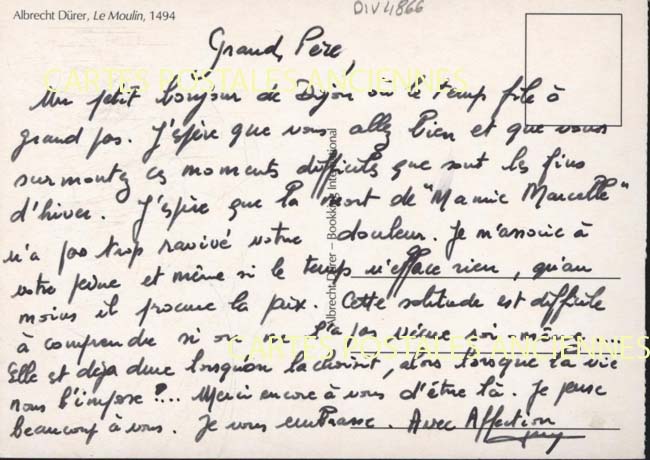 Albrecht Dürer, Le Moulin, 1494
DIV4866
Grand Père,
CARTES POSTALES ANCIENNES
Un petit bonjour de Dijon où le temp file à
grand pas. J'espère que vous allez bien et que vous
surmontez ces moments difficiles que sont les fins
d'hiver. J'espère que la mort de "Mamie Marcelle"
n'a pas trop ravivé votre douleur. Je m'associe à
votre peine et même si le temps n'efface rien, qu'au
moins il procure la paix. Cette solitude est difficile
à comprendre si on ne l'a pas vécue soi-même
CARTES POSTALES ANCIENNES
Elle est déjà dure lorsquon la choisit, alors lorsque la vie
nous l'impose ?... Merci encore à vous d'être là. Je pense
beaucoup à vous. Je vous embrasse. Avec Affection
Albrecht Dürer – Bookking International